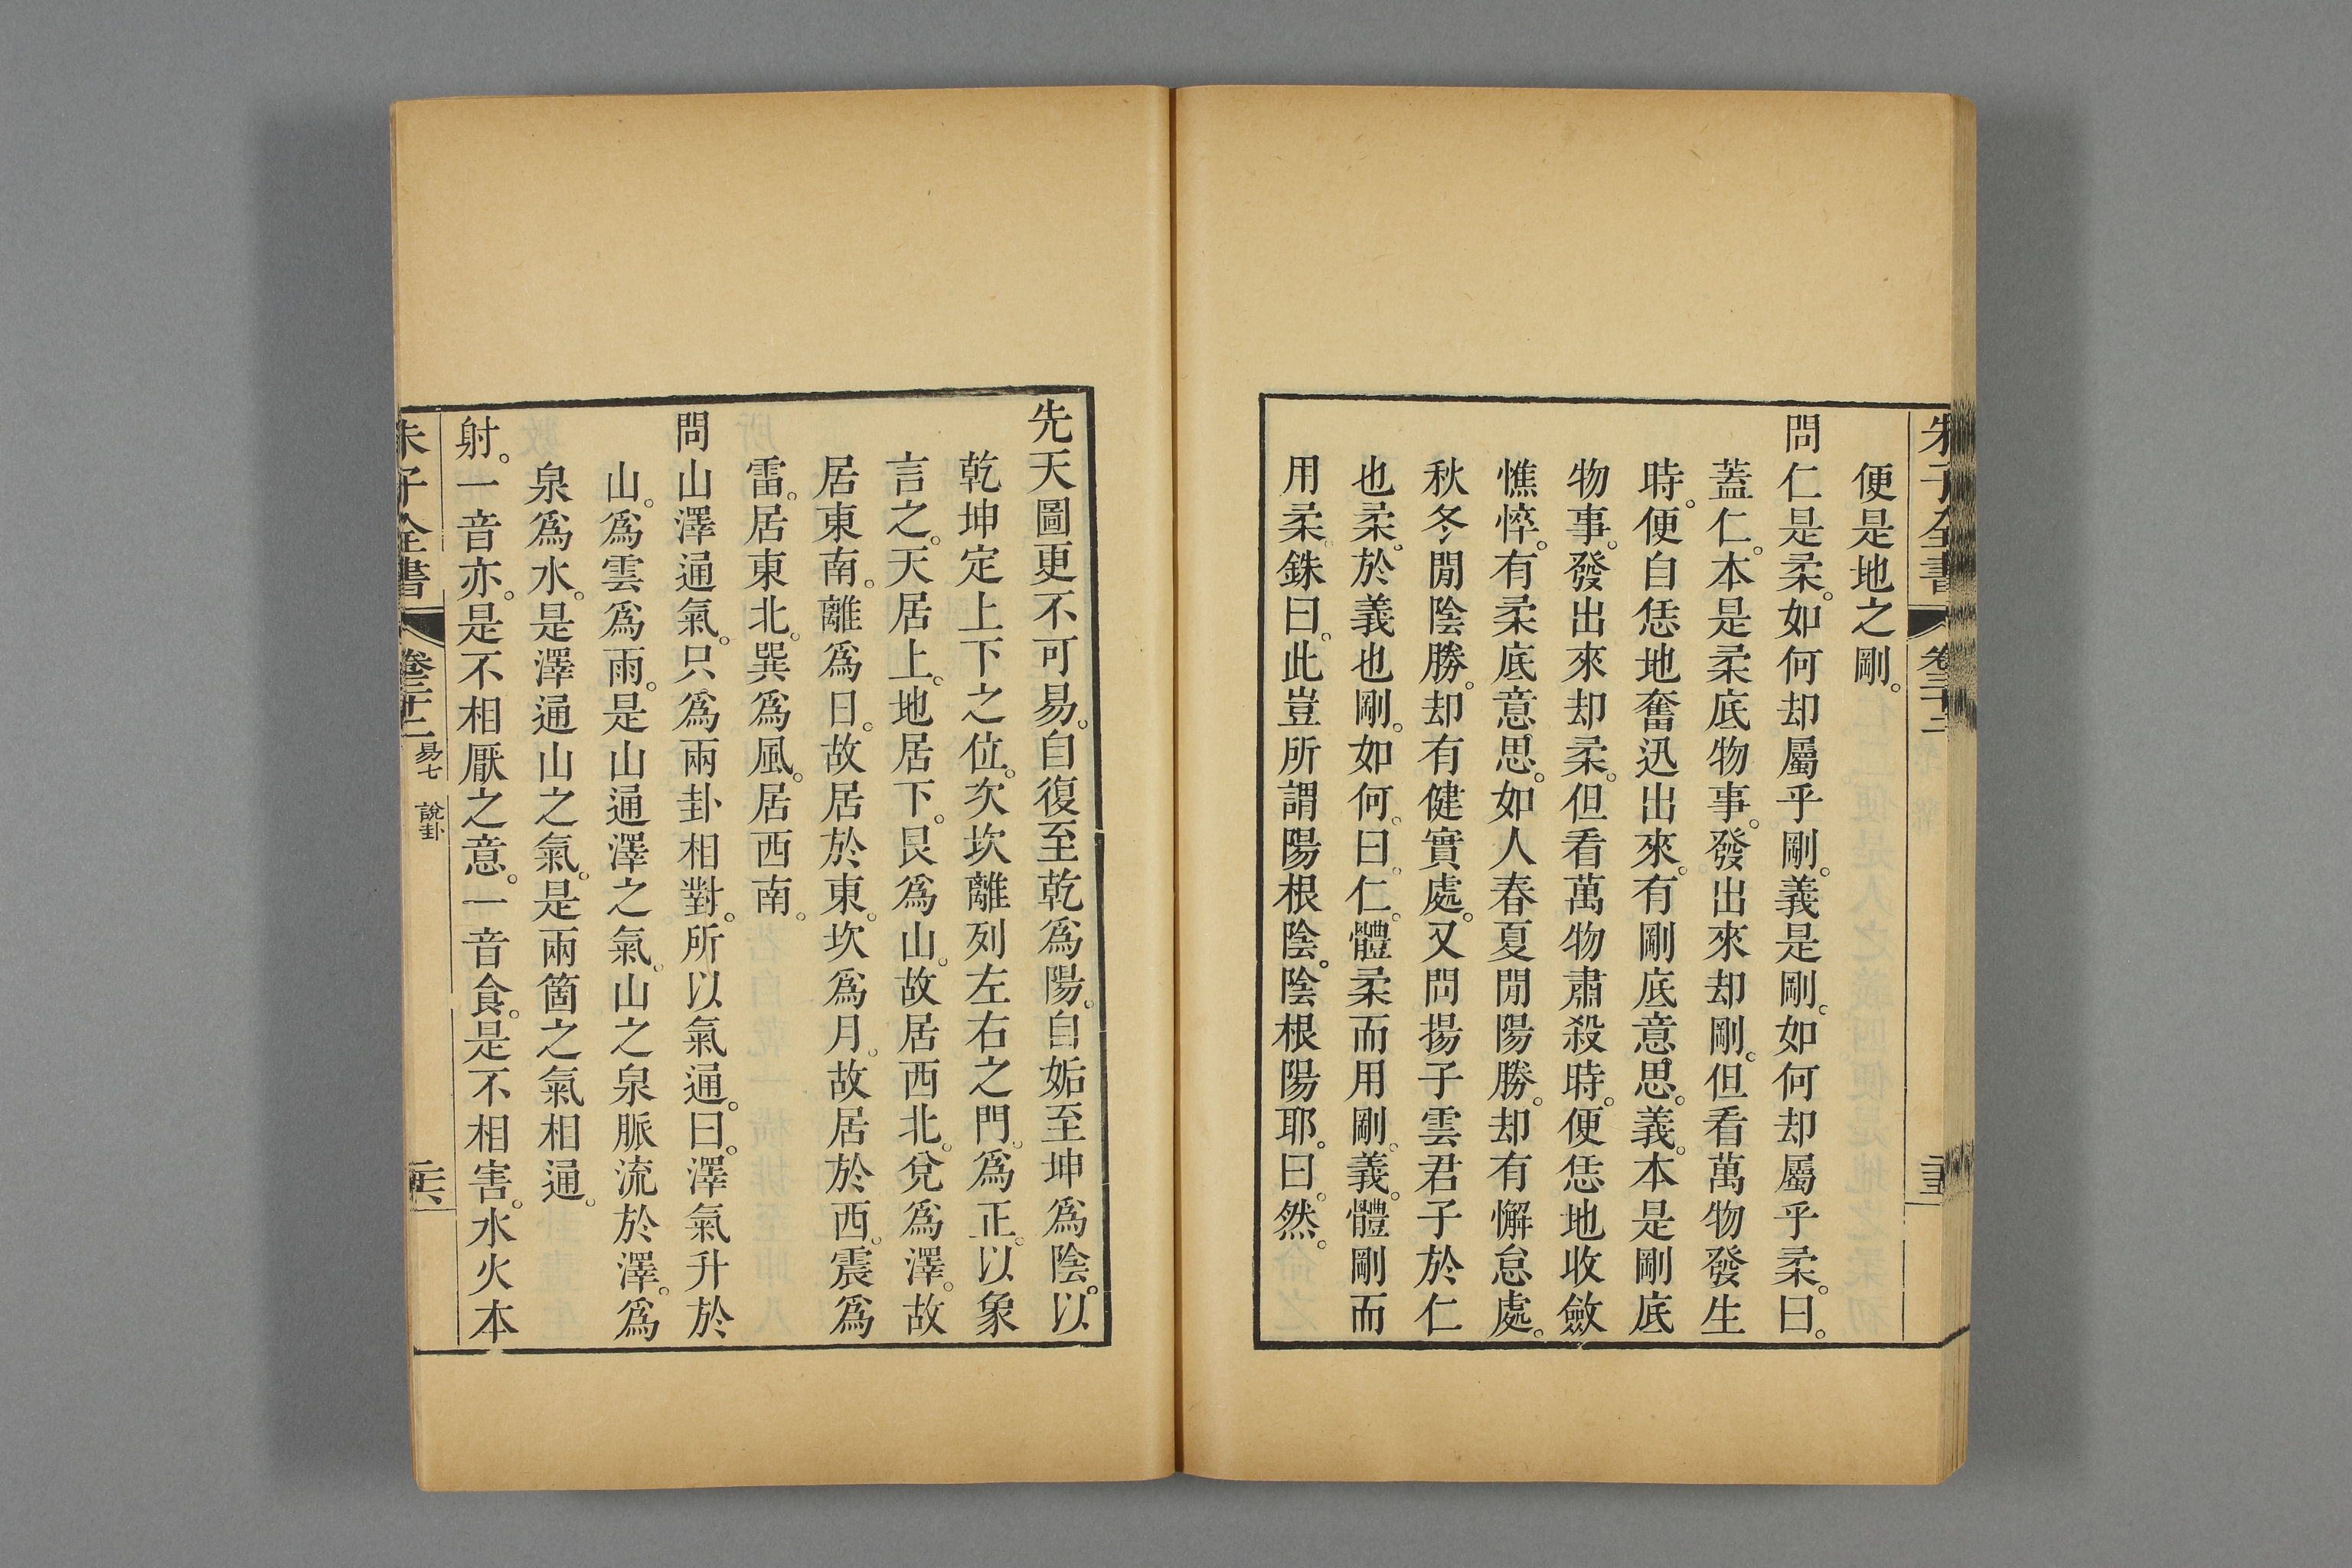 朱子全書 卷三十二
便是地之剛。
問仁是柔。如何却屬乎剛。義是剛。如何却屬乎柔。曰。
蓋仁。本是柔底物事。發出來却剛。但看萬物發生
時。便自恁地奮迅出來。有剛底意思。義。本是剛底
物事。發出來却柔。但看萬物肅殺時。便恁地收斂
憔悴。有柔底意思。如人春夏閒陽勝。却有懈怠處。
秋冬閒陰勝。却有健實處。又問揚子雲君子於仁
也柔。於義也剛。如何。曰。仁。體柔而用剛。義。體剛而
用柔。銖曰。此豈所謂陽根陰。陰根陽耶。曰。然。
先天圖更不可易。自復至乾爲陽。自姤至坤爲陰。以
乾坤定上下之位。次坎離列左右之門。爲正。以象
言之。天居上。地居下。艮爲山。故居西北。兌爲澤。故
居東南。離爲日。故居於東。坎爲月。故居於西。震爲
雷。居東北。巽爲風。居西南。
問山澤通氣。只爲兩卦相對。所以氣通。曰。澤氣升於
山。爲雲爲雨。是山通澤之氣。山之泉脈流於澤。爲
泉爲水。是澤通山之氣。是兩箇之氣相通。
射。一音亦。是不相厭之意。一音食。是不相害。水火本
朱子全書 卷三十二 易七 說卦